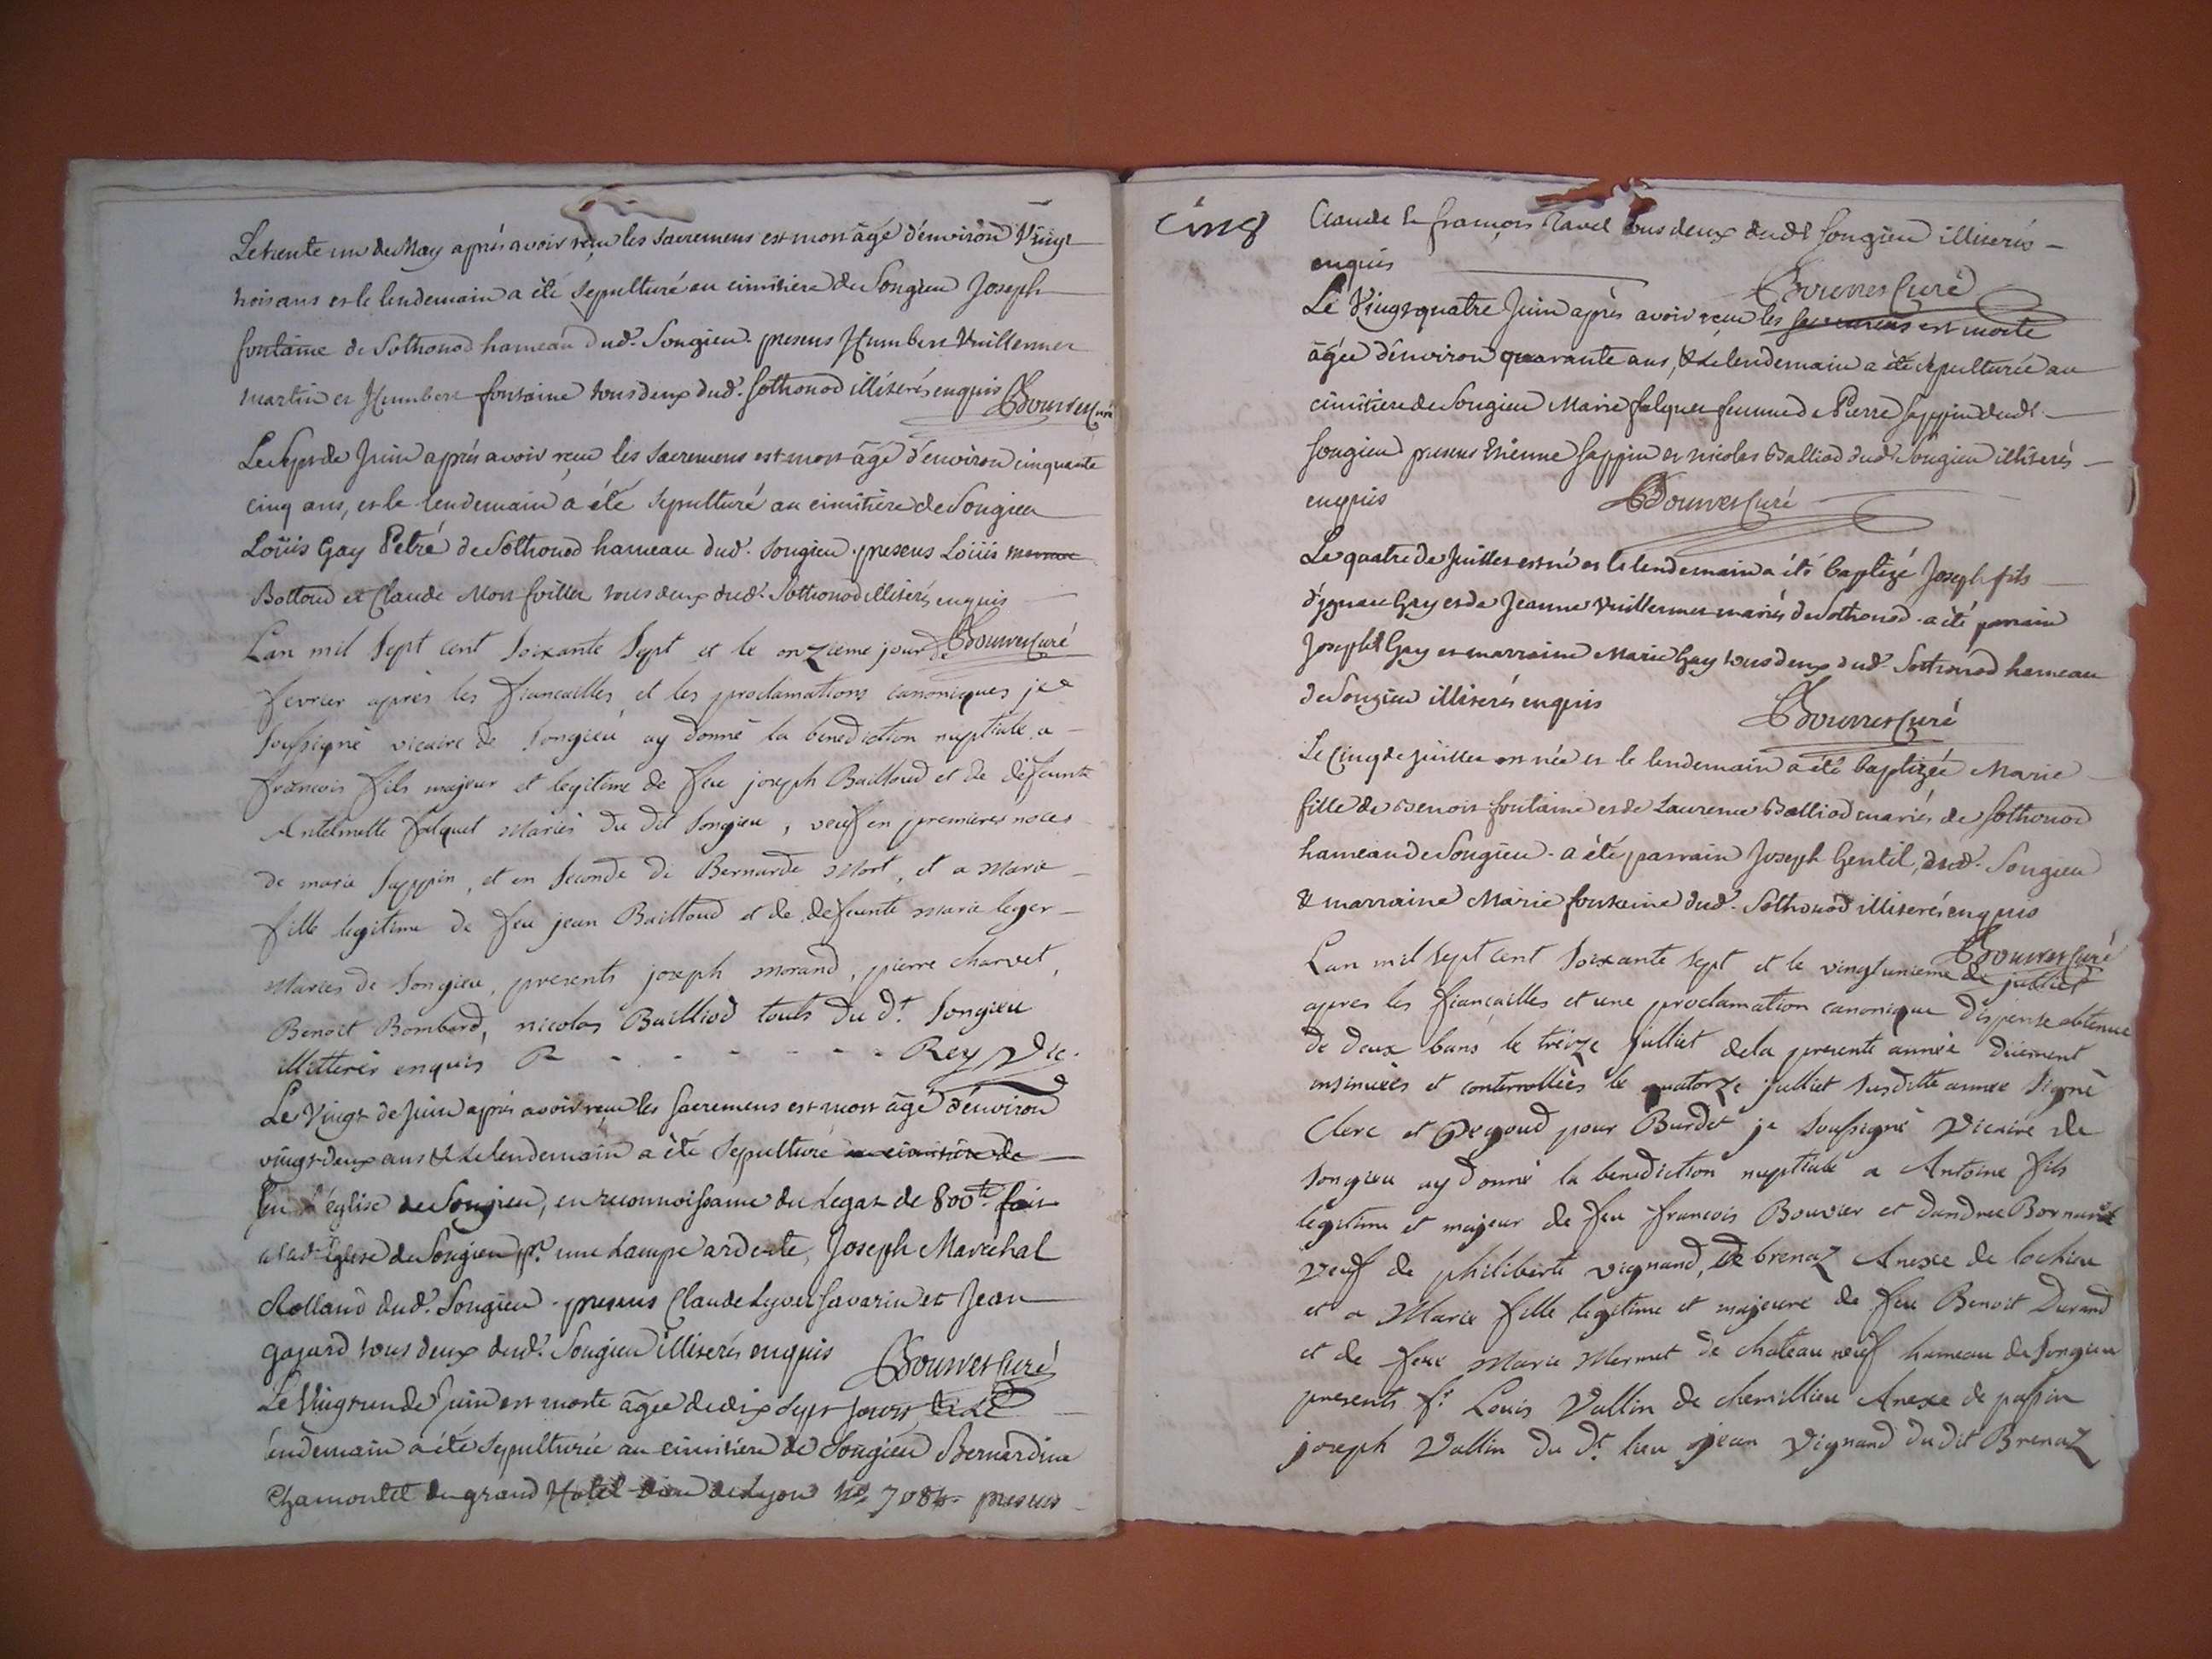 Le trente un de May après avoir reçu les sacremens est mort âgé d'environ Vingt
trois ans et le lendemain a été sepulturé au cimitière de Songieu Joseph
fontaine de Sothonod hameau dud. Songieu. presens Humbert Vuillermet
martin et Humbert fontaine tous deux dud. Sothonod illiterés enquis Bouvet Curé
Le sept de Juin après avoir reçu les sacremens est mort âgé d'environ cinquante
cinq ans, et le lendemain a été sepulturé au cimitière de Songieu
Loüis Gay Petré de Sothonod hameau dud. Songieu. presens Loüis
Bottoud et Claude Monfoiller tous deux dud. Sothonod illiterés enquis
Bouvet Curé
Lan mil sept cent soixante sept et le onzieme jour de
fevrier après les fiancailles et les proclamations canoniques je
soussigné vicaire de Songieu ay donné la benediction nuptiale a
francois fils majeur et legitime de feu joseph Bailloud et de defeunte
Antelmette falquet mariés du dit Songieu, veuf en premieres noces
de marie Sappin, et en seconde de Bernarde Mort, et a Marie
fille legitime de feu jean Bailloud et de defeunte marie leger
Mariés de Songieu, presents joseph morand, pierre charvet,
Benoit Bombard, nicolas Bailliod touts du dt. Songieu
illitterés enquis Rey Vic.
Le Vingt de Juin après avoir reçu les sacremens est mort âgé d'environ
vingt deux ans & le lendemain a été sepulturé au cimitière de
en l'église de Songieu, en reconnoissance du Legat de 800 fait
a lad. Eglise de Songieu pr. une Lampe ardente, Joseph Maréchal
Rolland dud. Songieu. presens Claude Lyvet Savarin et Jean
gojard tous deux dud. Songieu illiterés enquis Bouvet Curé
Le Vingt un de Juin est morte âgée de dix sept jours & le
lendemain a été sepulturée au cimitière de Songieu Bernardine
Chamontel du grand Hotel dieu de Lyon No 7084. presens
Cinq
Claude & françois Ravel tous deux dudt Songieu illiterés
enquis
Bouvet Curé
Le Vingt quatre Juin après avoir reçu les sacremens est morte
âgée d'environ quarante ans, & le lendemain a été sepulturée au
cimitiere de Songieu Marie falquet femme de Pierre Sappin dudt
Songieu presens Etienne Sappin et nicolas Balliod dud. Songieu illiterés
enquis Bouvet Curé
Le quatre de Juillet est né et le lendemain a été baptizé Joseph fils
d'ignace Gay et de Jeanne Vuillermet mariés de Sothonod. a été parrain
Joseph Gay et marraine Marie Gay tous deux dud. Sothonod hameau
de Songieu illiterés enquis Bouvet Curé
Le Cinq de Juillet est née et le lendemain a été baptizée Marie
fille de Benoit fontaine et de Laurence Balliod mariés de Sothonod
hameau de Songieu. a été parrain Joseph Gentil, dud. Songieu
& marraine Marie fontaine dud. Sothonod illiterés enquis
Bouvet Curé
Lan mil sept cent soixante sept et le vingt unieme de julliet
apres les fiançailles et une proclamation canonique dispense obtenue
de deux bans le treize julliet dela presente année düement
insinuées et conterrollées le quatorze julliet susditte année signé
Clerc et pour Burdet je soussigné Vicaire de
Songieu ay donné la benediction nuptiale a Antoine fils
legitime et majeur de feu francois Bouvier et dandrée Bornard
veuf de philiberte vignand, de brenaz Anexe de lochieu
et a Marie fille legitime et majeure de feu Benoit Durand
et de feue Marie Mermet de chateau neuf hameau de Songieu
presents sr. Louis Vallin de chemillieu Anexe de passin
joseph Vallin du dt. lieu jean vignand dudit Brenaz